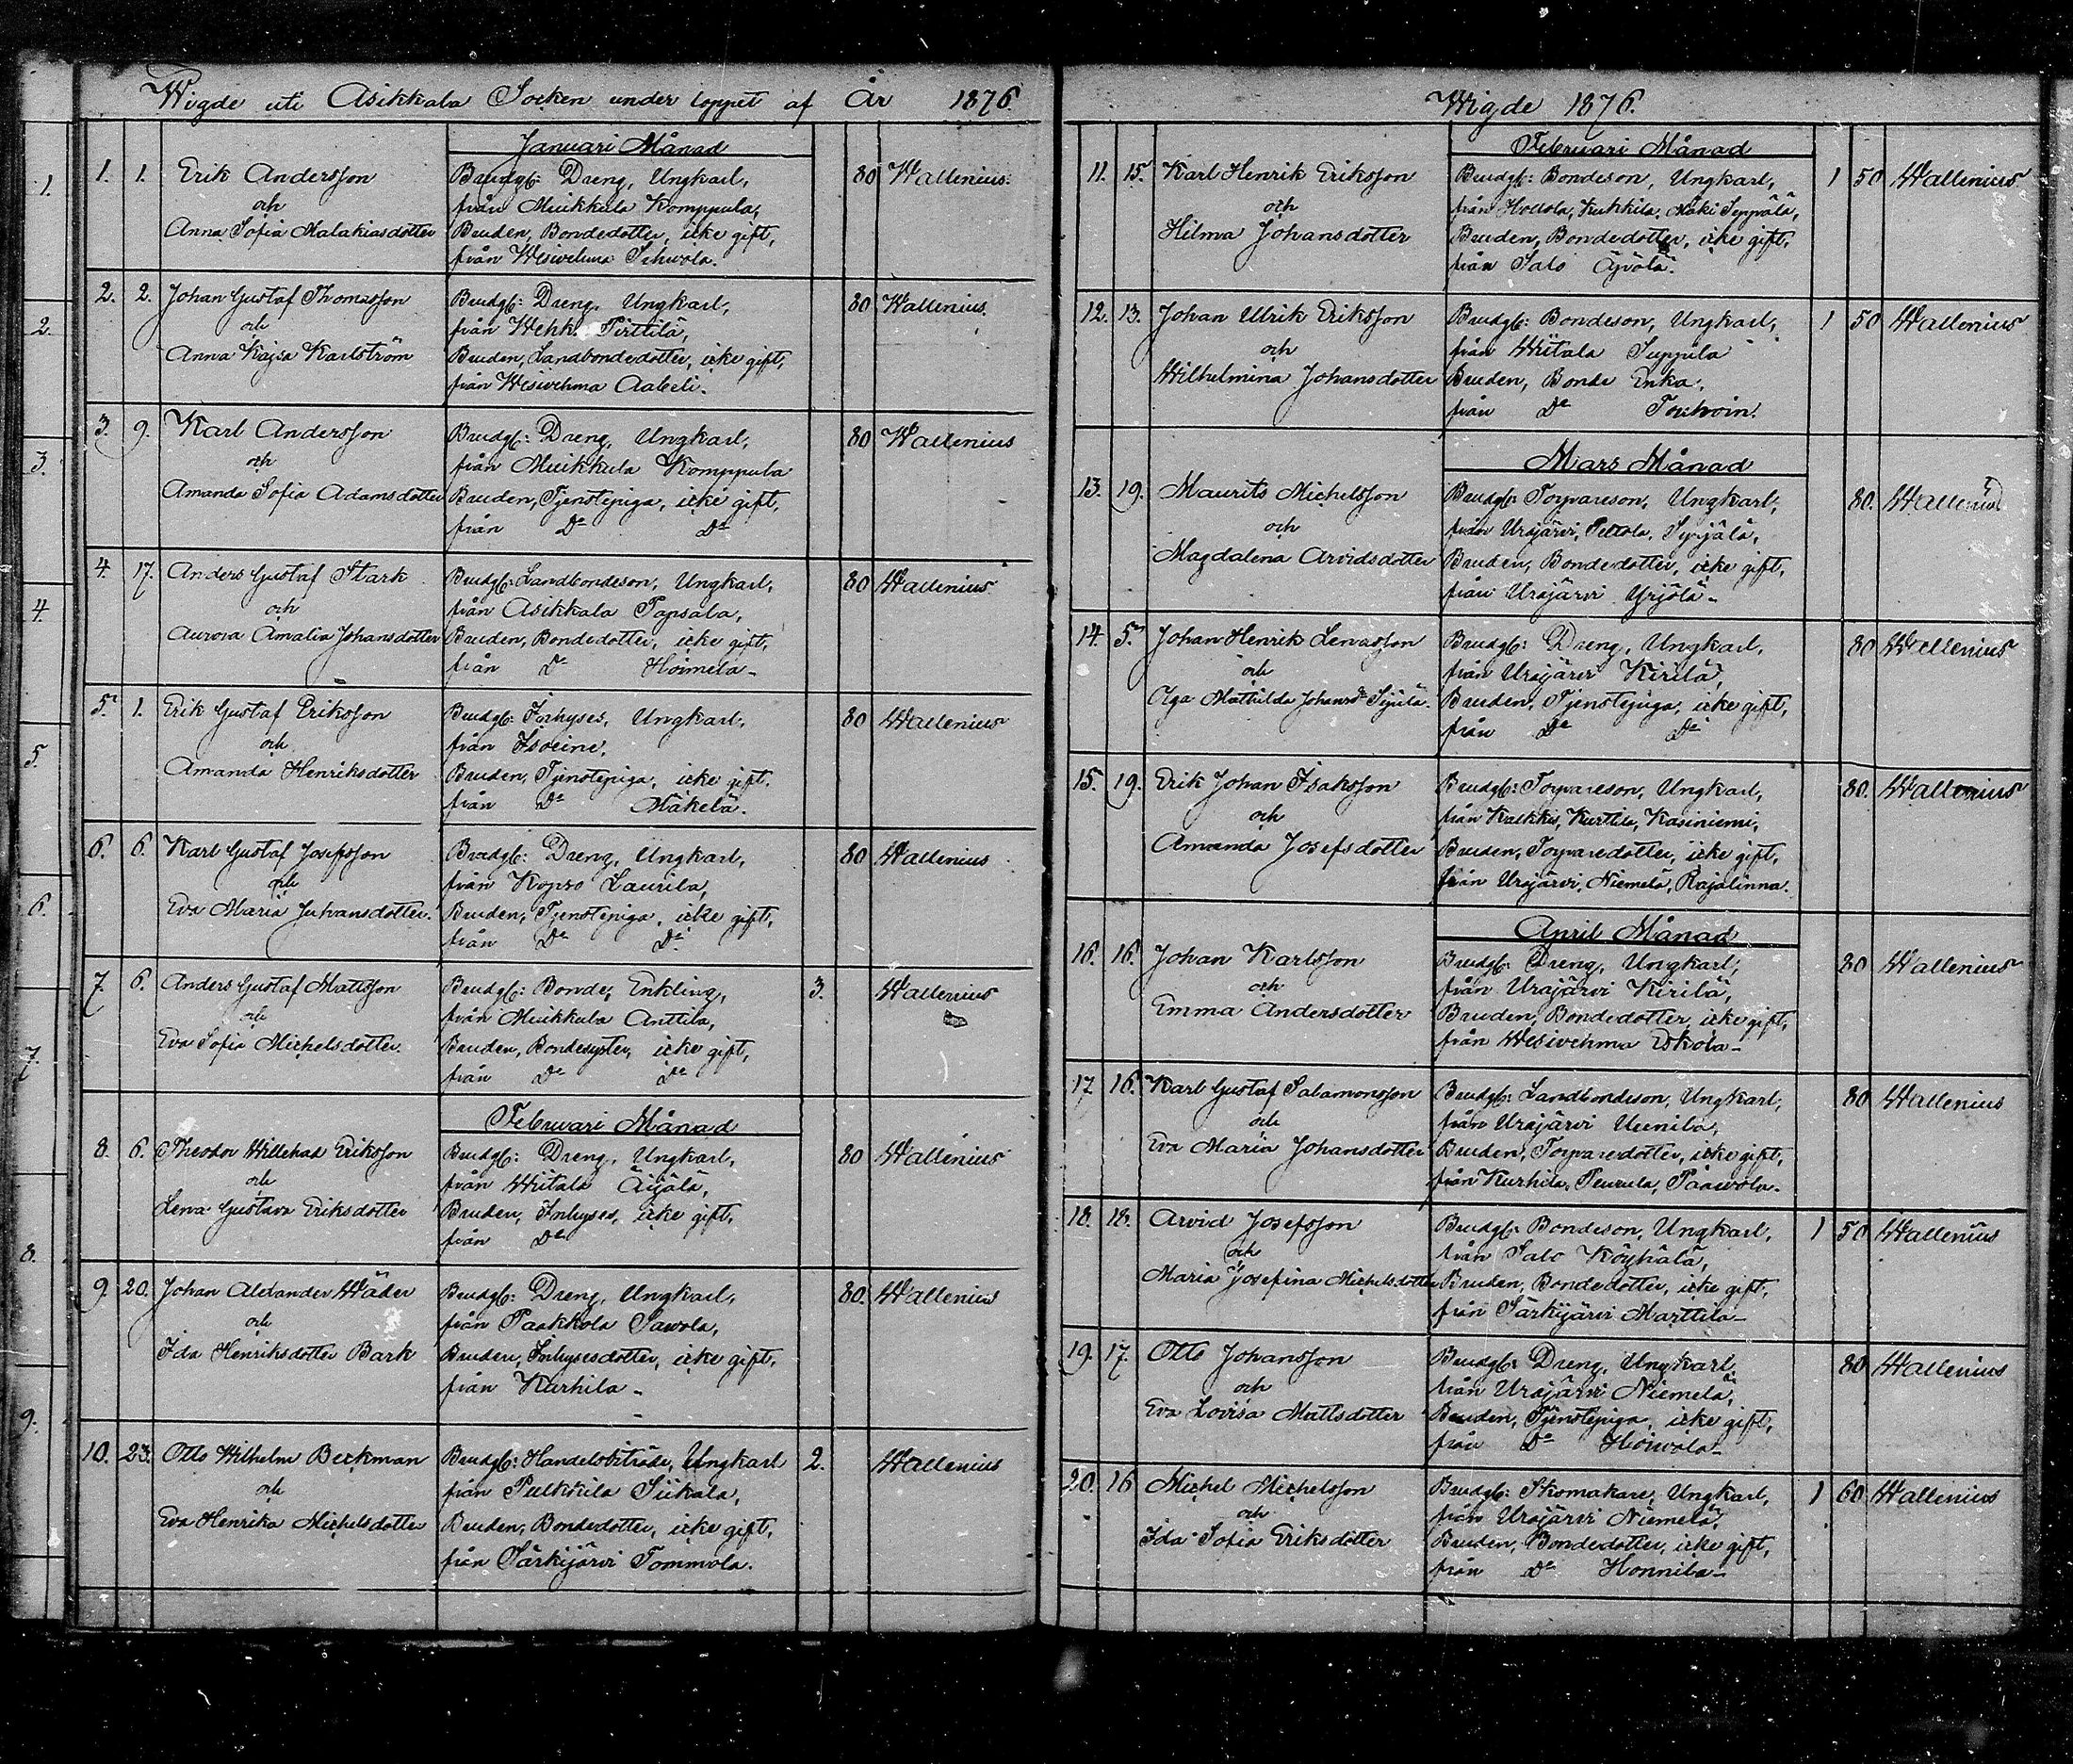 Wigde uti Asikkala Socken under loppet af År 1876.
Januari Månad
1. 1. Erik Andersson Brudg: Dreng, Ungkarl, 80 Wallenius.
och från Muikkula Komppula,
Anna Sofia Malakiasdotter Bruden, Bondedotter, icke gift,
från Wesivehma
2. 2. Johan Gustaf Thomasson Brudg: Dreng, Ungkarl, 80 Wallenius.
och från Wehk. Pirttilä,
Anna Kajsa Karlström Bruden, Landbondedotter, icke gift,
från Wesivehma Aabeli.
3. 9. Karl Andersson Brudg: Dreng, Ungkarl, 80 Wallenius
och från Muikkula Komppula
Amanda Sofia Adamsdotter Bruden, Tjenstepiga, icke gift,
från Do Do
4. 17. Anders Gustaf Stark Brudg: Landbondeson, Ungkarl, 80 Wallenius
och från Asikkala Papsala,
Aurora Amalia Johansdotter Bruden, Bondedotter, icke gift,
från Do Hoimela
5. 1. Erik Gustaf Eriksson Brudg: Inhyses, Ungkarl, 80 Wallenius
och från
Amanda Henriksdotter Bruden, Tjenstepiga, icke gift,
från Do Mäkelä.
6. 6. Karl Gustaf Josefsson Brudg: Dreng, Ungkarl, 80 Wallenius
och från Kopso Laurila,
Eva Maria Juhansdotter. Bruden, Tjenstepiga, icke gift,
från Do Do
7. 6. Anders Gustaf Mattsson Brudg: Bonde, Enkling, 3. Wallenius
och från Muikkula Anttila,
Eva Sofia Michelsdotter. Bruden, Bondesyster, icke gift,
från Do Do
Februari Månad
8. 6. Theodor Willehad Eriksson Brudg: Dreng, Ungkarl, 80 Wallenius
och från Wiitala Äijälä,
Lena Gustava Eriksdotter Bruden, Inhyses, icke gift,
från Do
9. 20. Johan Alexander Wäder Brudg: Dreng, Ungkarl, 80. Wallenius
och från Paakkola Sawola,
Ida Henriksdotter Bark Bruden, Inhysesdotter, icke gift,
från Kurhila
10. 23. Otto Wilhelm Beckman Brudg: Handelsbiträde, Ungkarl 2. Wallenius
och från Pulkkila Siikala,
Eva Henrika Michelsdotter Bruden, Bondedotter, icke gift,
från Särkijärvi Tommola.
1.
2.
3.
4.
5.
6.
7.
8.
9.
Wigde 1876.
Februari Månad
11. 15. Karl Henrik Eriksson Brudg: Bondeson, Ungkarl, 1 50 Wallenius
och från Hollola, Kukkila, Mäki Seppälä,
Hilma Johansdotter Bruden, Bondedotter, icke gift,
från Salo
12. 13. Johan Ulrik Eriksson Brudg: Bondeson, Ungkarl, 1 50 Wallenius
och från Wiitala
Wilhelmina Johansdotter Bruden, Bonde Enka,
från Do
Mars Månad
13. 19. Maurits Michelsson Brudg: Torpareson, Ungkarl, 80. Wallenius
och från Urajärvi, Peltola,
Magdalena Arvidsdotter Bruden, Bondedotter, icke gift,
från Urajärvi Yrjölä
14. 5. Johan Henrik Lenasson Brudg: Dreng, Ungkarl, 80 Wallenius
och från Urajärvi Kirilä,
Olga Mathilda Johansdr Bruden, Tjenstepiga, icke gift,
från Do Do
15. 19. Erik Johan Isaksson Brudg: Torpareson, Ungkarl, 80. Wallenius
och från Kalkkis, Kurttila, Kasiniemi,
Amanda Josefsdotter Bruden, Torparedotter, icke gift,
från Urajärvi, Niemelä, Rajalinna.
April Månad
16. 16. Johan Karlsson Brudg: Dreng, Ungkarl, 80 Wallenius
och från Urajärvi Kirilä,
Emma Andersdotter Bruden, Bondedotter, icke gift,
från Wesivehma Eskola
17. 16. Karl Gustaf Salamonsson Brudg: Landbondeson, Ungkarl, 80 Wallenius
och från Urajärvi Uunila,
Eva Maria Johansdotter Bruden, Torparedotter, icke gift,
från Kurhila, Peurula, Paawola
18. 18. Arvid Josefsson Brudg: Bondeson, Ungkarl, 1 50 Wallenius
och från Salo Köykälä,
Maria Josefina Michelsdotter Bruden, Bondedotter, icke gift,
från Särkijärvi Marttila
19. 17. Otto Johansson Brudg: Dreng, Ungkarl 80 Wallenius
och från Urajärvi Niemelä,
Eva Lovisa Mattsdotter Bruden, Tjenstepiga, icke gift,
från Do
20. 16 Michel Michelsson Brudg: Skomakare, Ungkarl, 1 60 Wallenius
och från Urajärvi Niemelä,
Ida Sofia Eriksdotter Bruden, Bondedotter, icke gift,
från Do Honnila